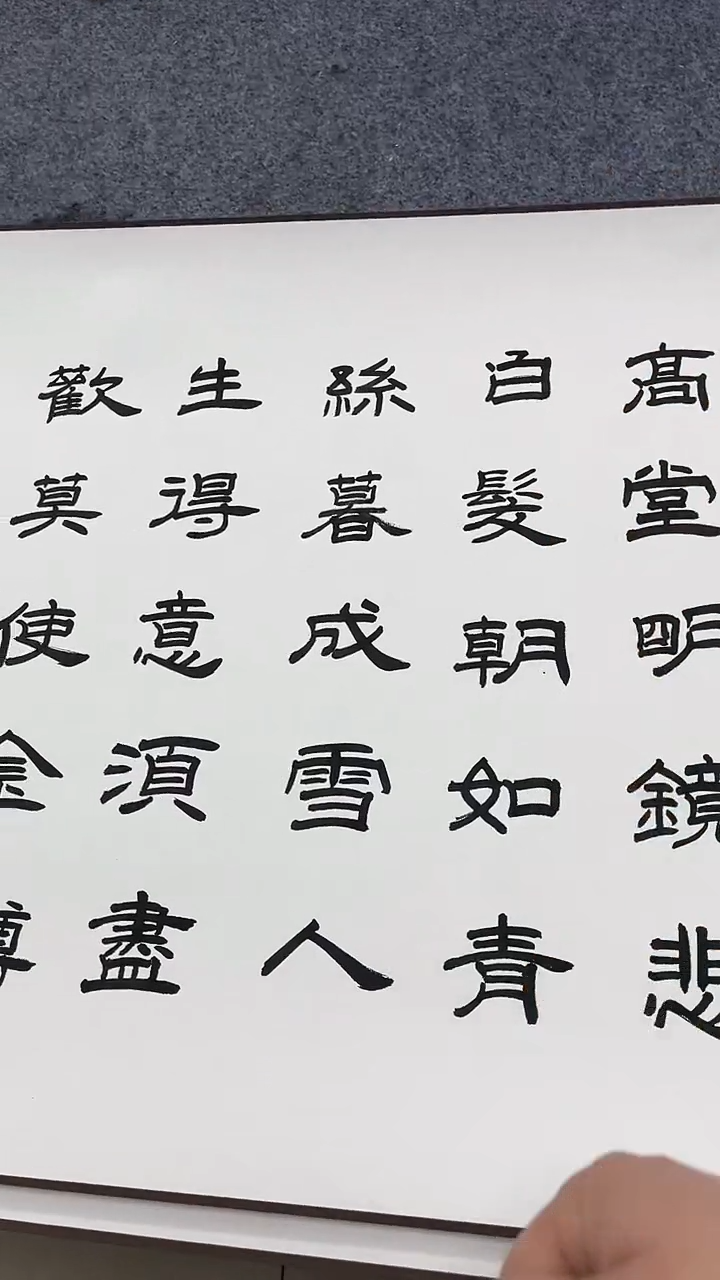 高堂明鏡悲
白髮朝如青
絲暮成雪人
生得意須盡
歡莫使金